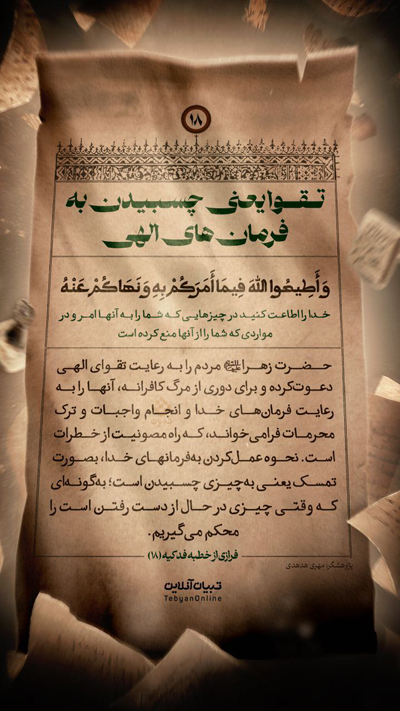 ۱۸
تقوا یعنی چسبیدن به
فرمان های الهی
وَ أَطِیعُوا اللهَ فِیمَا أَمَرَكُمْ بِهِ وَ نَهَاكُمْ عَنْهُ
خدا را اطاعت کنید در چیزهایی که شما را به آنها امر و در
مواردی که شما را از آنها منع کرده است
حضرت زهرا مردم را به رعایت تقوای الهی
دعوت‌کرده و برای دوری از مرگ کافرانه، آنها را به
رعایت فرمان‌های خدا و انجام واجبات و ترک
محرمات فرامی‌خواند، که راه مصونیت از خطرات
است. نحوه عمل‌کردن به‌فرمانهای خدا، بصورت
تمسک یعنی به‌چیزی چسبیدن است؛ به‌گونه‌ای
که وقتی چیزی در حال از دست رفتن است را
محکم می‌گیریم.
فرازی از خطبه فدکیه (۱۸)
پژوهشگر: مهری هدهدی
تبیان آنلاین
TebyanOnline